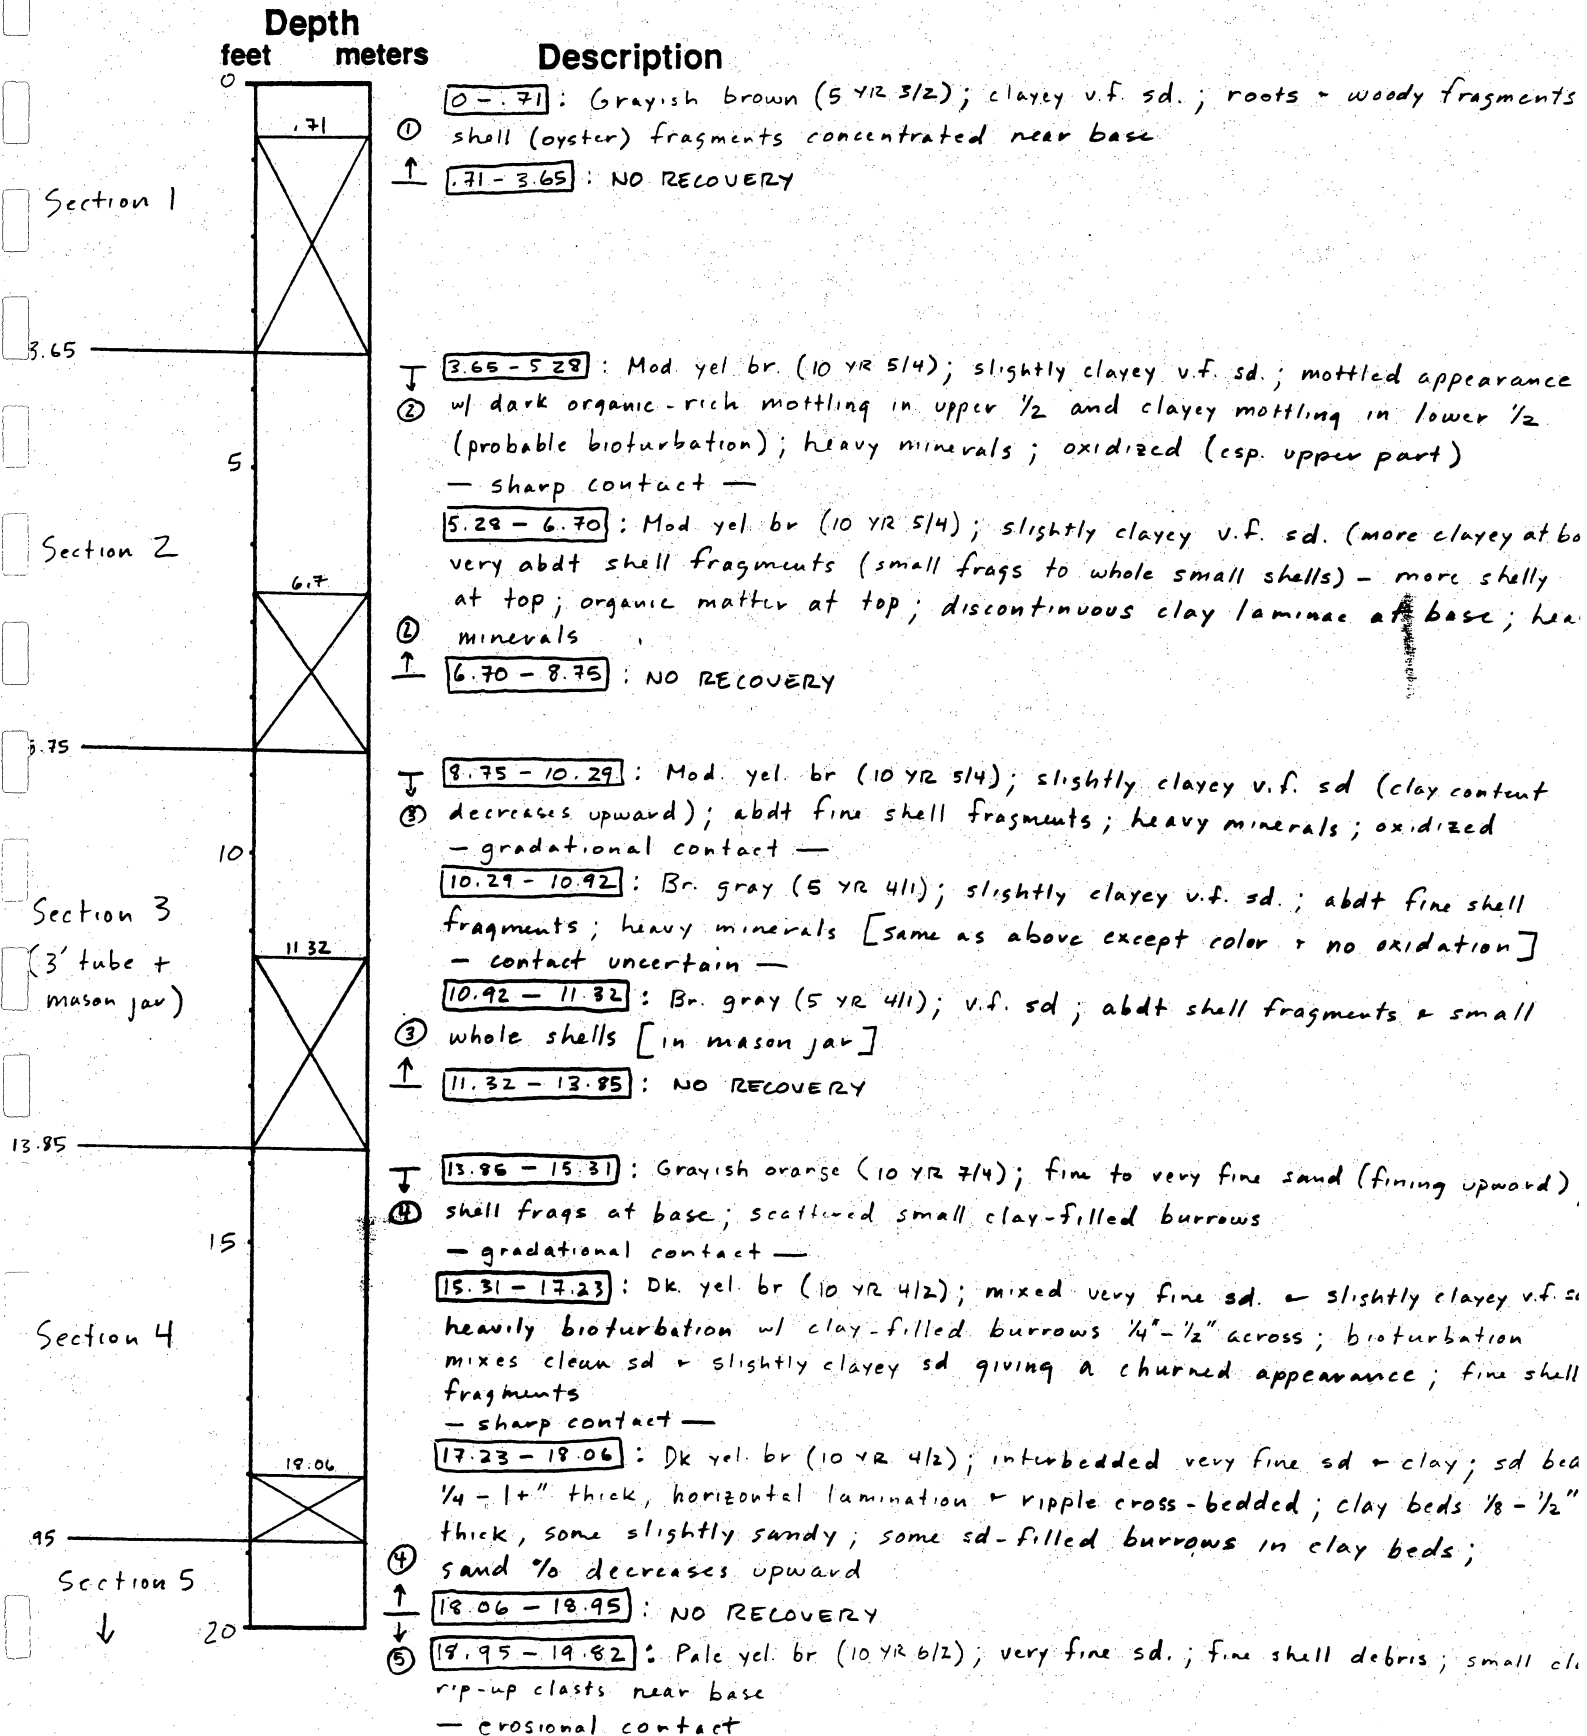 Depth
feet meters Description
0
[0 - .71]: Grayish brown (5 YR 3/2); clayey v.f. sd.; roots + woody fragments
.71
① shell (oyster) fragments concentrated near base
↑ [.71 - 3.65]: NO RECOVERY
Section 1
3.65
[3.65 - 5.28]: Mod. yel. br. (10 YR 5/4); slightly clayey v.f. sd.; mottled appearance
↓
② w/ dark organic-rich mottling in upper 1/2 and clayey mottling in lower 1/2
(probable bioturbation); heavy minerals; oxidized (esp. upper part)
5
— sharp contact —
[5.28 - 6.70]: Mod yel br (10 YR 5/4); slightly clayey v.f. sd. (more clayey at
Section 2
very abdt shell fragments (small frags to whole small shells) - more shelly
6.7
at top; organic matter at top; discontinuous clay laminae at base;
② minerals
↑ [6.70 - 8.75]: NO RECOVERY
.75
[8.75 - 10.29]: Mod. yel. br (10 YR 5/4); slightly clayey v.f. sd (clay content
↓
③ decreases upward); abdt fine shell fragments; heavy minerals; oxidized
— gradational contact —
10
[10.29 - 10.92]: Br. gray (5 YR 4/1); slightly clayey v.f. sd.; abdt fine shell
Section 3
fragments; heavy minerals [same as above except color + no oxidation]
11.32
(3' tube +
— contact uncertain —
mason jar)
[10.92 - 11.32]: Br. gray (5 YR 4/1); v.f. sd; abdt shell fragments + small
③ whole shells [in mason jar]
↑ [11.32 - 13.85]: NO RECOVERY
13.85
[13.85 - 15.31]: Grayish orange (10 YR 7/4); fine to very fine sand (fining upward)
↓
④ shell frags at base; scattered small clay-filled burrows
15
— gradational contact —
[15.31 - 17.23]: Dk. yel. br (10 YR 4/2); mixed very fine sd. + slightly clayey v.f.
Section 4
heavily bioturbation w/ clay-filled burrows 1/4" - 1/2" across; bioturbation
mixes clean sd + slightly clayey sd giving a churned appearance; fine shell
fragments
— sharp contact —
[17.23 - 18.06]: Dk yel. br (10 YR 4/2); interbedded very fine sd + clay; sd
18.06
1/4 - 1+" thick, horizontal lamination + ripple cross-bedded; clay beds 1/8 - 1/2"
.95
thick, some slightly sandy; some sd-filled burrows in clay beds;
④ sand % decreases upward
Section 5
↑ [18.06 - 18.95]: NO RECOVERY
↓
20
↓
⑤ [18.95 - 19.82]: Pale yel. br (10 YR 6/2); very fine sd.; fine shell debris; small
rip-up clasts near base
— erosional contact